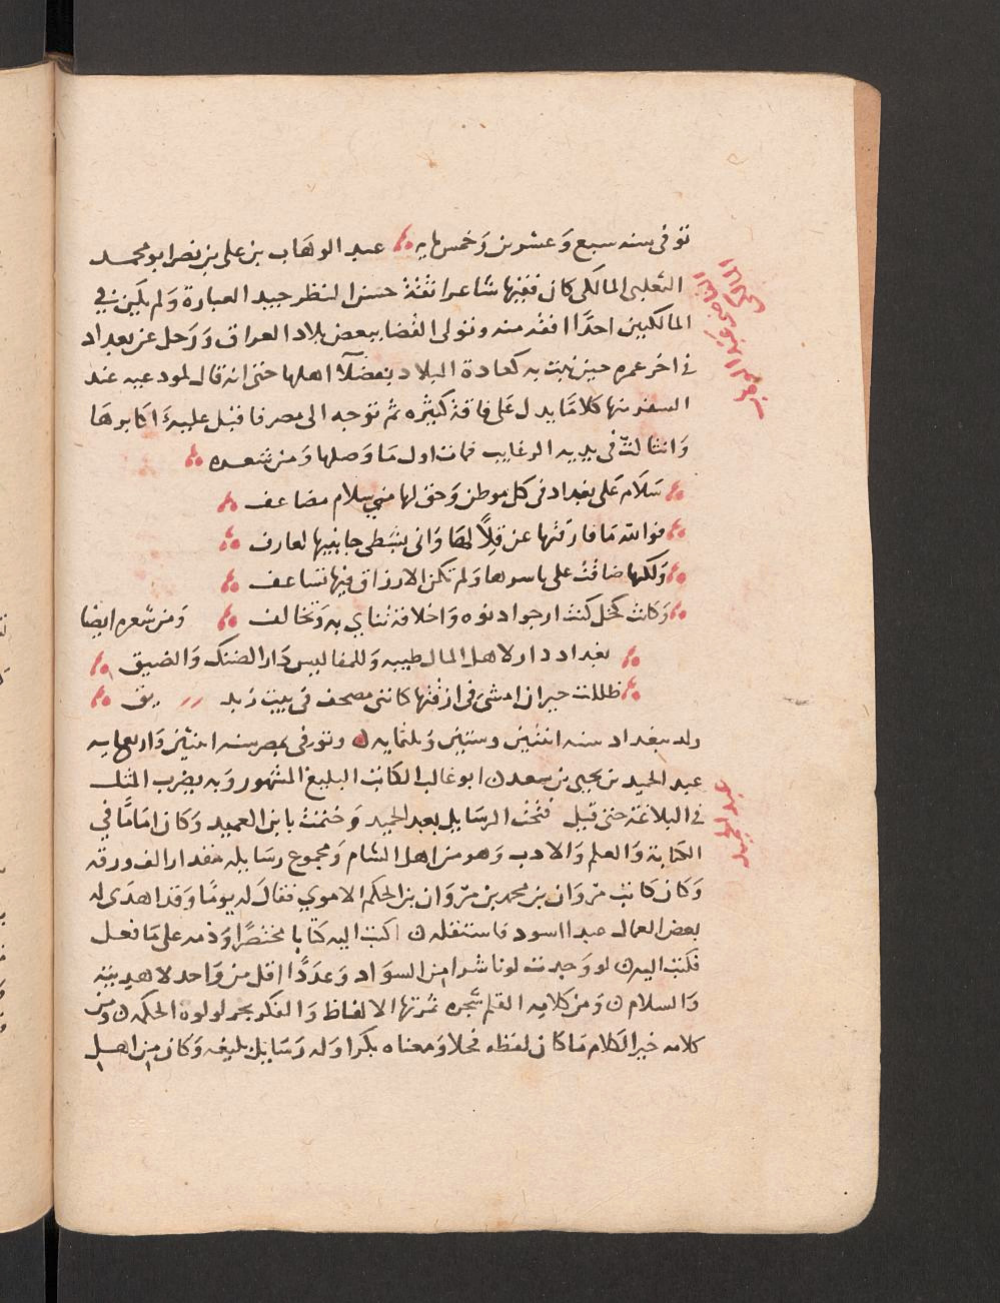 توفى سنه سبع وعشرين وخمسمايه عبد الوهاب بن على بن نصر ابو محمد
الثعلبى المالكى كان فقيها شاعرا ثقة حسن النظر جيد العبارة ولم يكن في
المالكيين احدًا افقه منه وتولى القضا ببعض بلاد العراق ورحل عن بغداد
فى اخر عمره حين نبت به كعادة البلاد بفضلآ اهلها حتى انه قال لمودعيه عند
السفر منها كلامًا يدل على فاقة كثيره ثم توجه الى مصر فاقبل عليه اكابرها
وانثالت فى يديه الرغايب فمات اول ما وصلها ومن شعره
سلام على بغداد فى كل موطن وحق لها مني سلام مضاعف
فوالله ما فارقتها عن قلًا لها وانى بشطى جانبيها لعارف
ولكنها ضاقت على باسرها ولم تكن الارزاق فيها تساعف
وكانت كخل كنت ارجوا دنوه واخلاقه تناي به وتخالف ومن شعره ايضا
بغداد دار لاهل المال طيبه وللمفاليس دار الضنك والضيق
ظللت حيران امشى فى ازقتها كاننى مصحف فى بيت زند يق
ولد ببغداد سنه اثنتين وستين وثلثمايه وتوفى بمصر سنه اثنتين واربعمايه
عبد الحميد بن يحيى بن سعد ابو غالب الكاتب البليغ المشهور وبه يضرب المثل
فى البلاغة حتى قيل فتحت الرسايل بعبد الحميد وختمت بابن العميد وكان امامًا في
الكتابة والعلم والادب وهو من اهل الشام ومجموع رسايله مقدار الف ورقه
وكان كاتب مروان بن محمد بن مروان بن الحكم الاموي فقال له يومًا وقد اهدى له
بعض العمال عبدا اسود فاستثقله اكتب اليه كتابا مختصرًا وذمه على ما فعل
فكتب اليه لو وجدت لونا شرا من السواد وعددًا اقل من واحد لاهديته
والسلام ومن كلامه القلم شجره ثمرتها الالفاظ والفكر بحر لولوه الحكمه ومن
كلامه خير الكلام ما كان لفظه فحلا ومعناه بكرا وله رسايل بليغه وكان من اهل
القاضى عبد الوهاب
المالكى
عبد الحميد